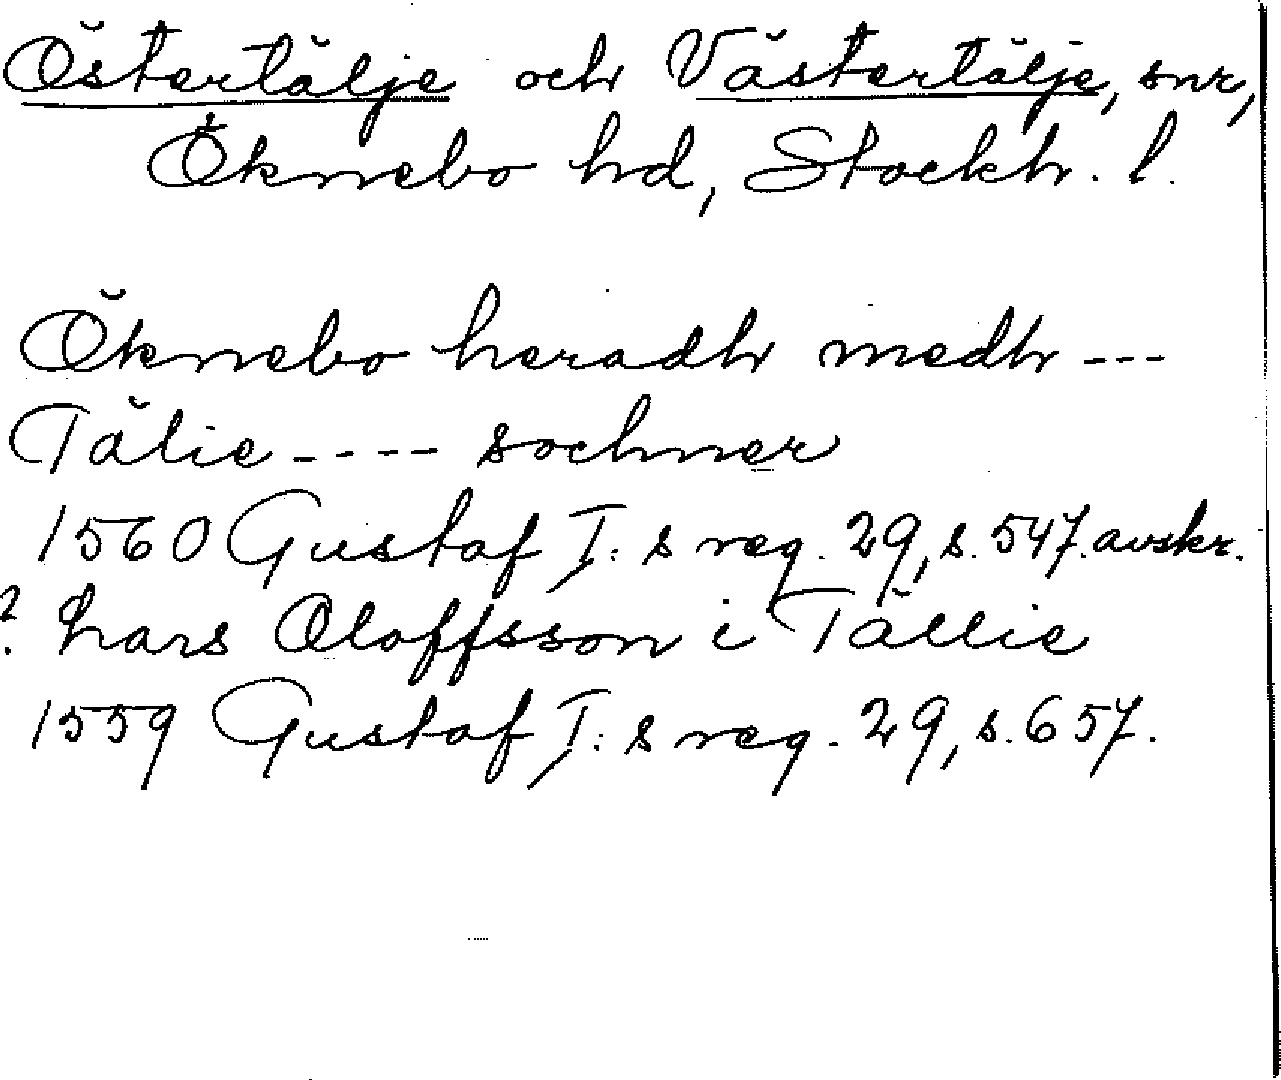 Östertälje och Västertälje, snr,
Öknebo hd, Stockh. l.
Öknebo heradh medh ---
Tälie ---- sochner
1560 Gustaf I:s reg. 29, s. 547. avskr.
? Lars Oloffsson i Tällie
1559 Gustaf I:s reg. 29, s. 657.